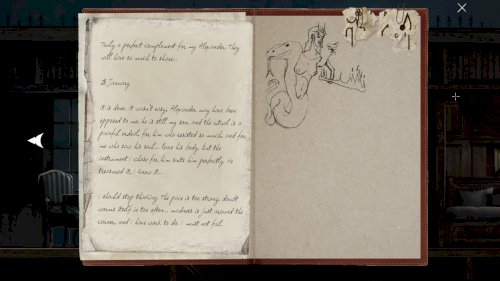 Truly a perfect complement for my Alexander. They
will have so much to share.
28 January
it is done. it wasn't easy, Alexander may have been
opposed to me, he is still my son, and the ritual is a
painful ordeal, for him who resisted so much, and for
me who saw his soul... leave his body. but the
instrument i chose for him suits him perfectly. he
treasured it, i know it...
i should stop thinking. The pain is too strong, doubt
worms itself in too often... madness is just around the
corner, and i have work to do. i must not fail.